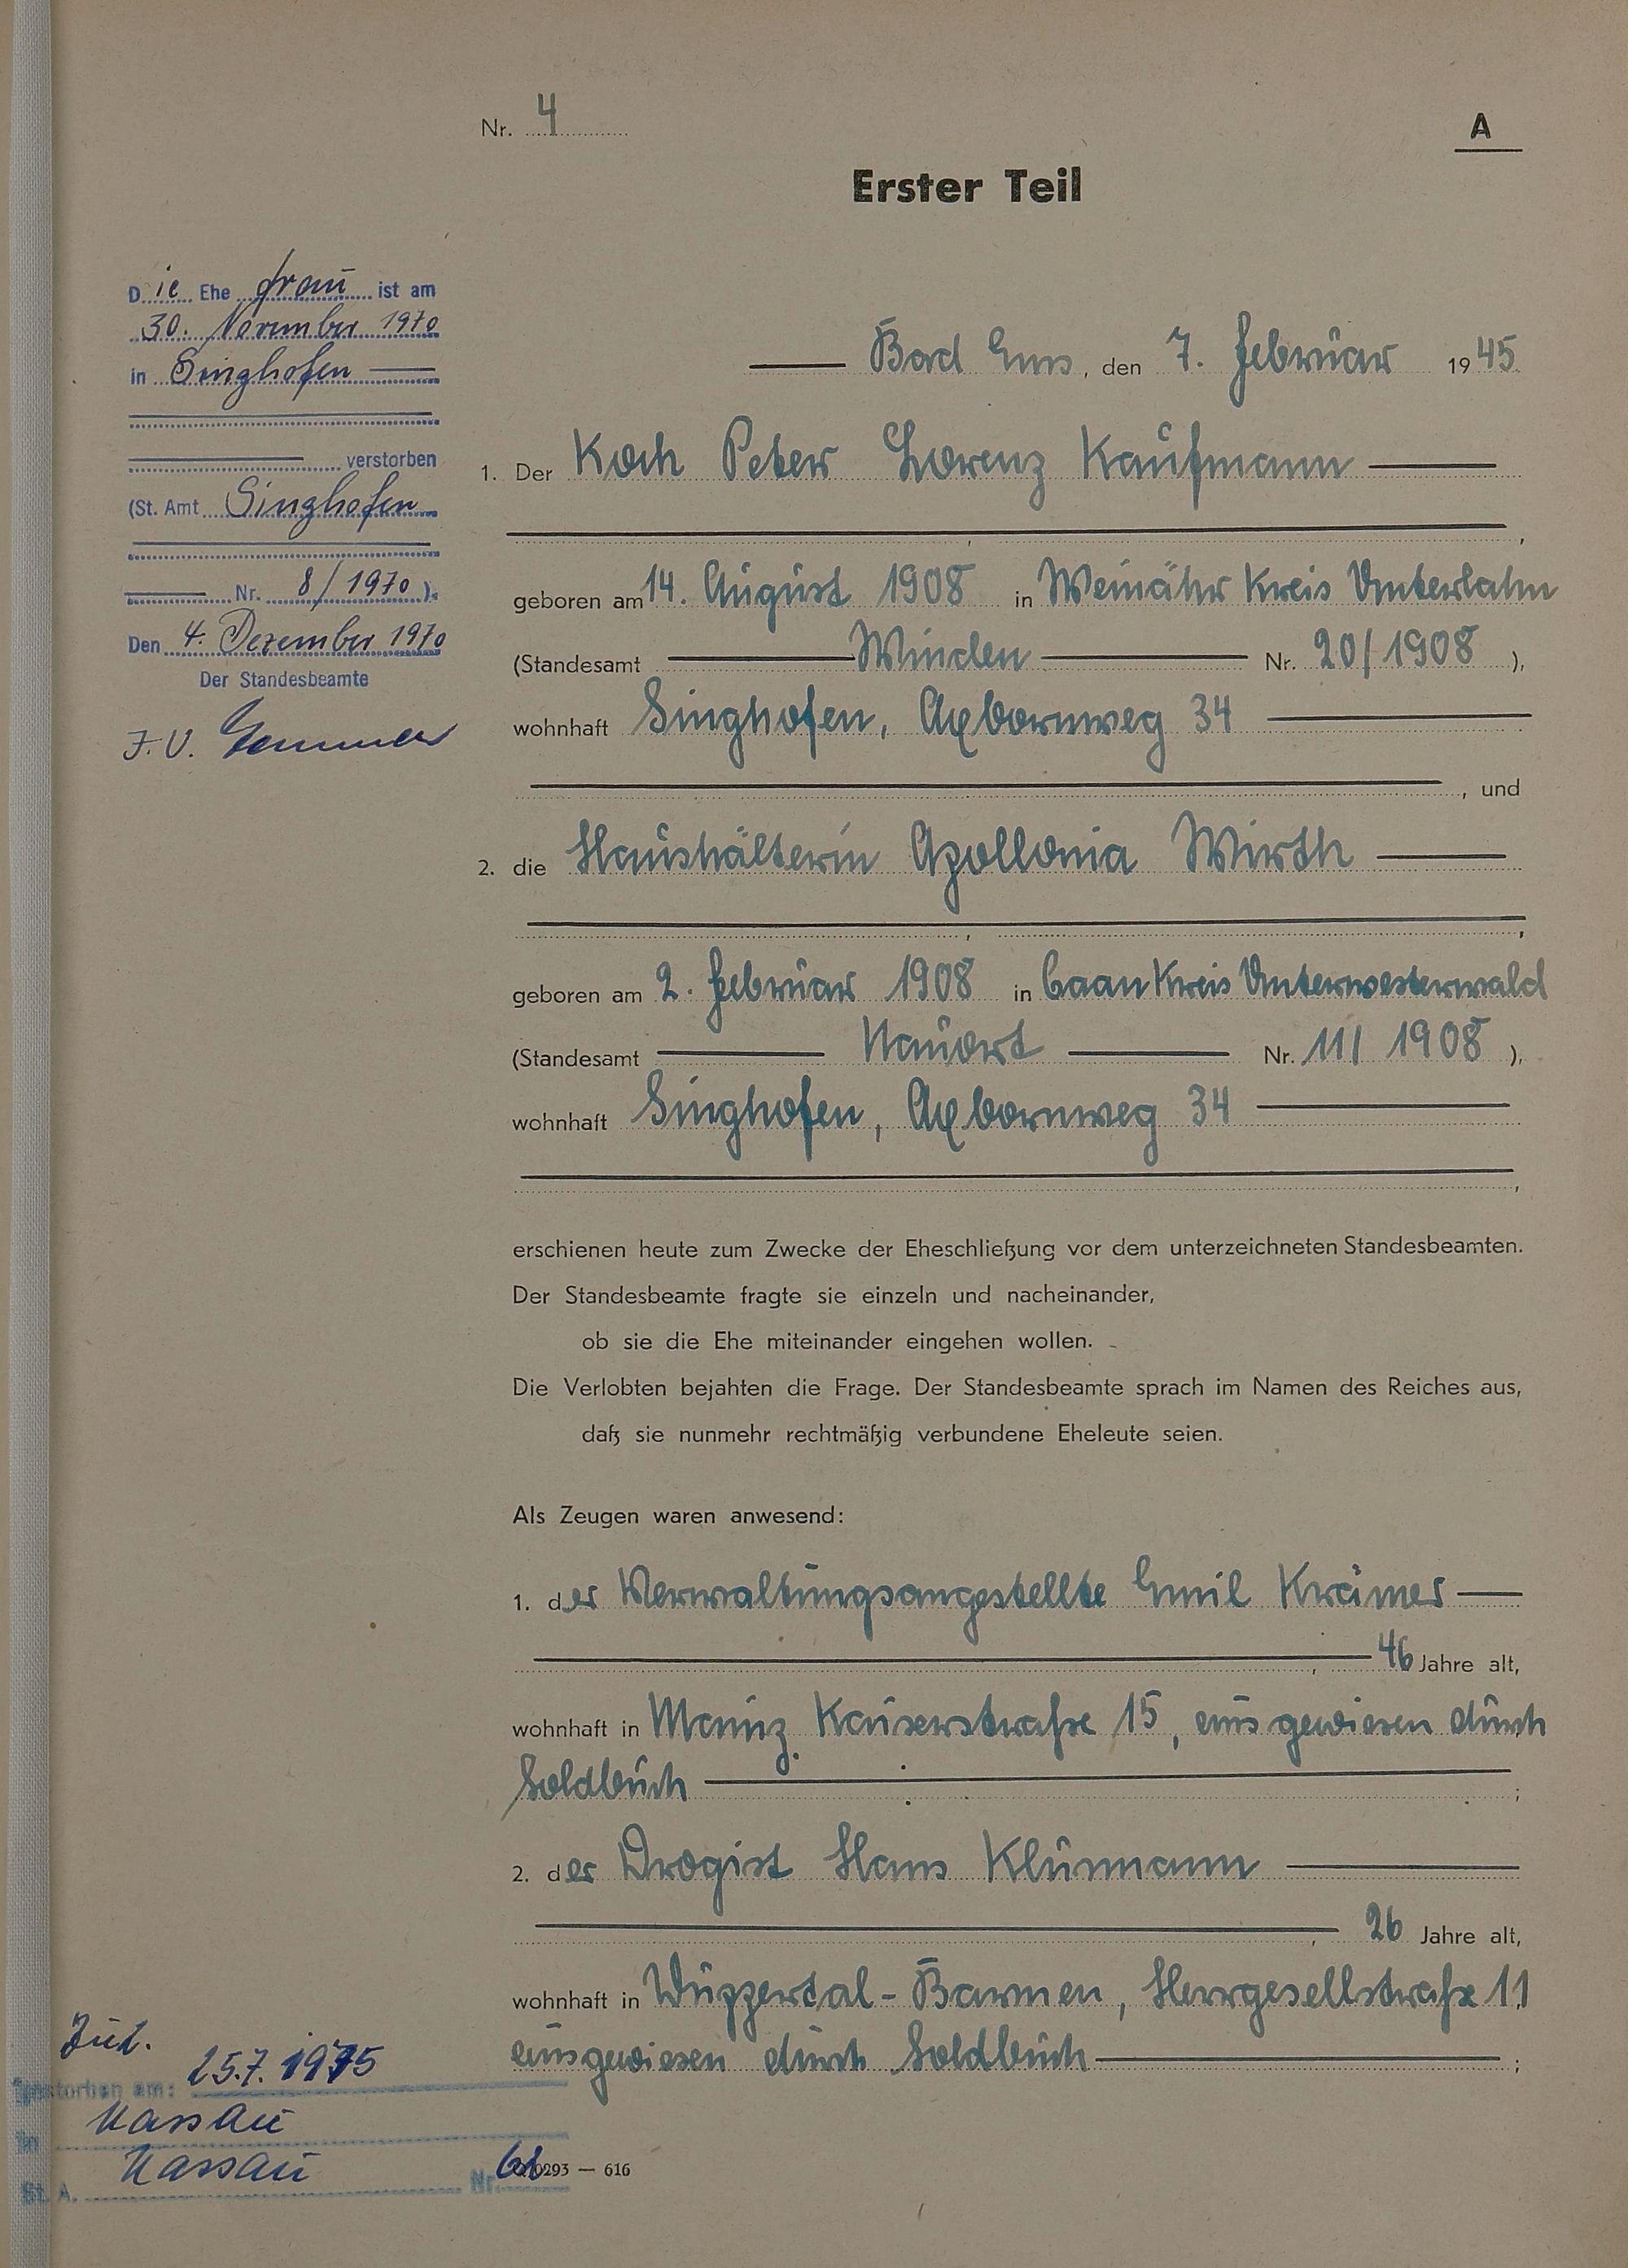 Nr. 4
A
Erster Teil
Die Ehe frau ist am
30. November 1970
in Singhofen
verstorben
(St. Amt Singhofen
Nr. 8/1970).
Den 4. Dezember 1970
Der Standesbeamte
J.V.
Bad Ems, den 7. Februar 1945.
1. Der Koch Peter Lorenz Kaufmann
geboren am 14. August 1908 in Weinähr Kreis Unterlahn
(Standesamt Winden Nr. 20/1908 ),
wohnhaft Singhofen, Axbornweg 34
, und
2. die Haushälterin Apollonia Wirth
geboren am 2. Februar 1908 in Caan Kreis Unterwesterwald
(Standesamt Nauort Nr. 11/ 1908 ),
wohnhaft Singhofen, Axbornweg 34
erschienen heute zum Zwecke der Eheschließung vor dem unterzeichneten Standesbeamten.
Der Standesbeamte fragte sie einzeln und nacheinander,
ob sie die Ehe miteinander eingehen wollen.
Die Verlobten bejahten die Frage. Der Standesbeamte sprach im Namen des Reiches aus,
daß sie nunmehr rechtmäßig verbundene Eheleute seien.
Als Zeugen waren anwesend:
1. der Verwaltungsangestellte Emil Krämer
46 Jahre alt,
wohnhaft in Mainz. Kaiserstraße 15, ausgewiesen durch
Soldbuch ;
2. der Drogist Hans Klüsmann
26 Jahre alt,
wohnhaft in Wuppertal-Barmen, Herrgesellstraße 11
ausgewiesen durch Soldbuch ;
gestorben am: 25.7.1975
in Nassau
St. A. Nassau Nr.
0293 — 616